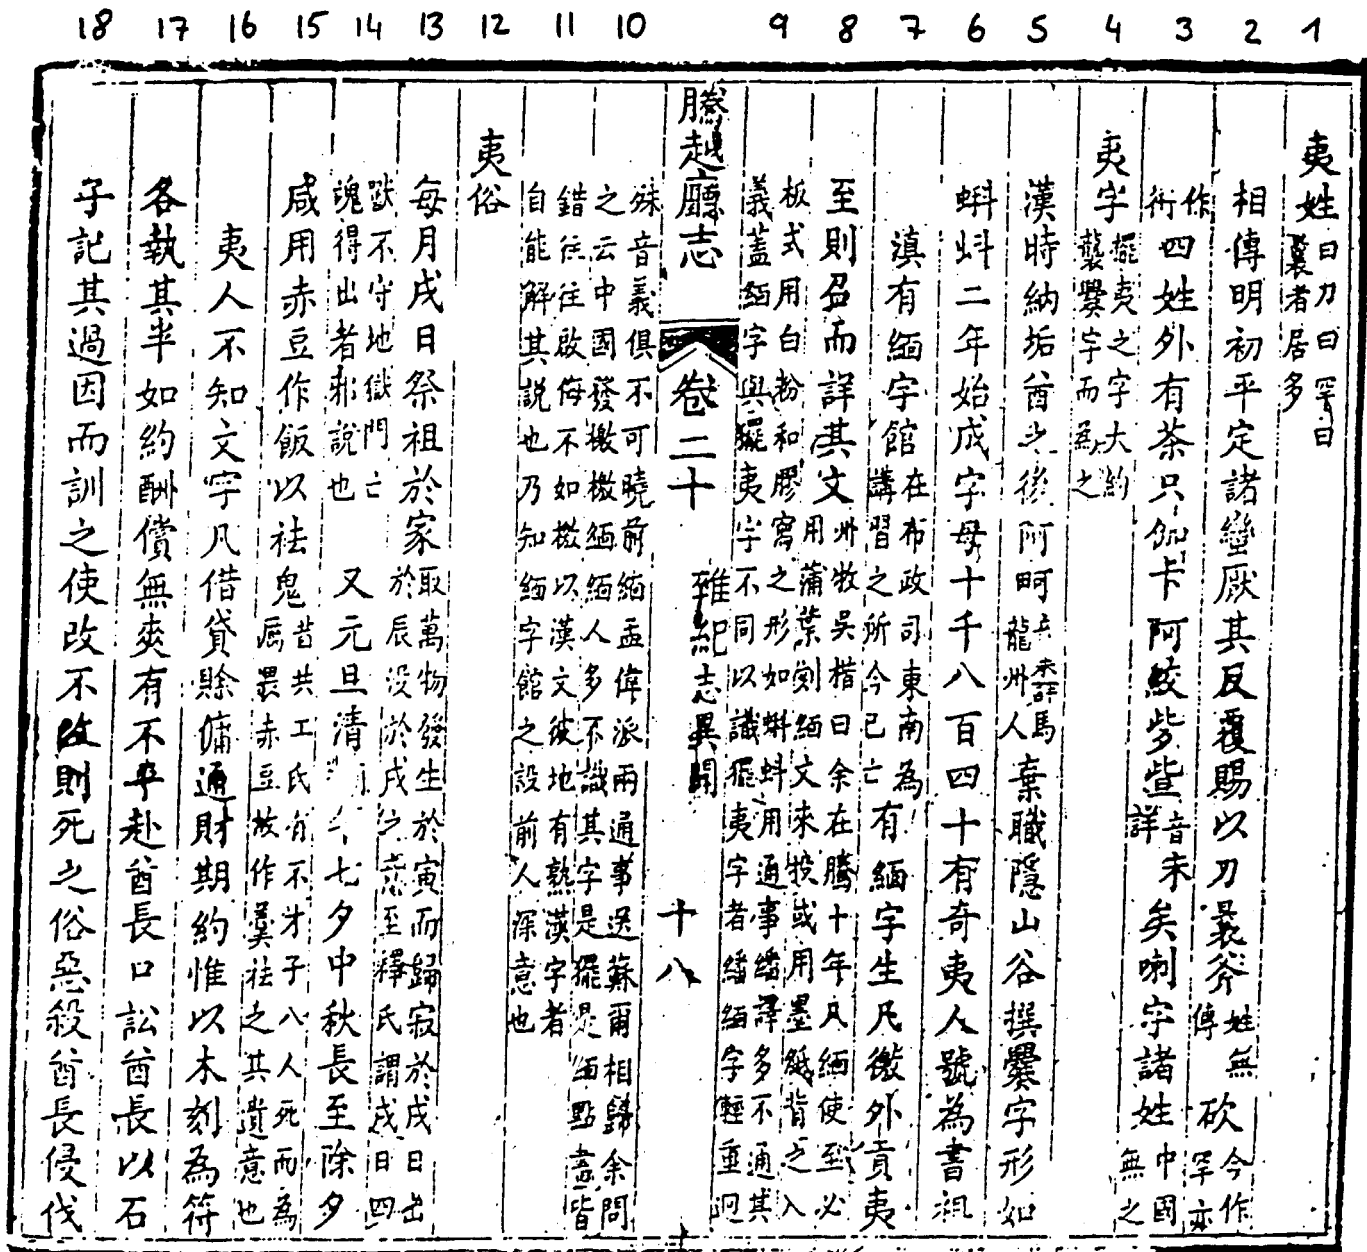 18 17 16 15 14 13 12 11 10 9 8 7 6 5 4 3 2 1
夷姓曰刀曰罕曰曩者居多
相傳明初平定諸蠻厭其反覆賜以刀曩斧姓無傳砍今作罕亦
作衎四姓外有茶只伽卡阿鮫音未詳矣喇字諸姓中國無之
夷字擺夷之字大約襲爨字而為之
漢時納垢酋之後阿畸音未詳馬龍州人棄職隱山谷撰爨字形如
蝌蚪二年始成字母十千八百四十有奇夷人號為書祖
滇有緬字館在布政司東南為講習之所今已亡有緬字生凡徼外貢夷
至則召而詳其文州牧吳楷曰余在騰十年凡緬使至必用蒲葉刻緬文來投或用墨紙背之入
板式用白粉和膠寫之形如蝌蚪用通事繙譯多不通其義蓋緬字與擺夷字不同以識擺夷字者繙緬字輕重迥
騰越廳志 卷二十 雜紀志異聞 十八
殊音義俱不可曉前緬孟偉派兩通事送蘇爾相歸余問之云中國發檄檄緬緬人多不識其字是擺是緬點畫皆
錯往往啟侮不如檄以漢文彼地有熟漢字者自能解其說也乃知緬字館之設前人深意也
夷俗
每月戌日祭祖於家取萬物發生於寅而歸寂於戌日出於辰沒於戌之意至釋氏謂戌日四
獄不守地獄門亡魂得出者邪說也又元旦清七夕中秋長至除夕
咸用赤豆作飯以祛鬼昔共工氏有不才子八人死而為厲畏赤豆故作羹祛之其遺意也
夷人不知文字凡借貸賒傭通財期約惟以木刻為符
各執其半如約酬償無爽有不平赴酋長口訟酋長以石
子記其過因而訓之使改不改則死之俗惡殺酋長侵伐